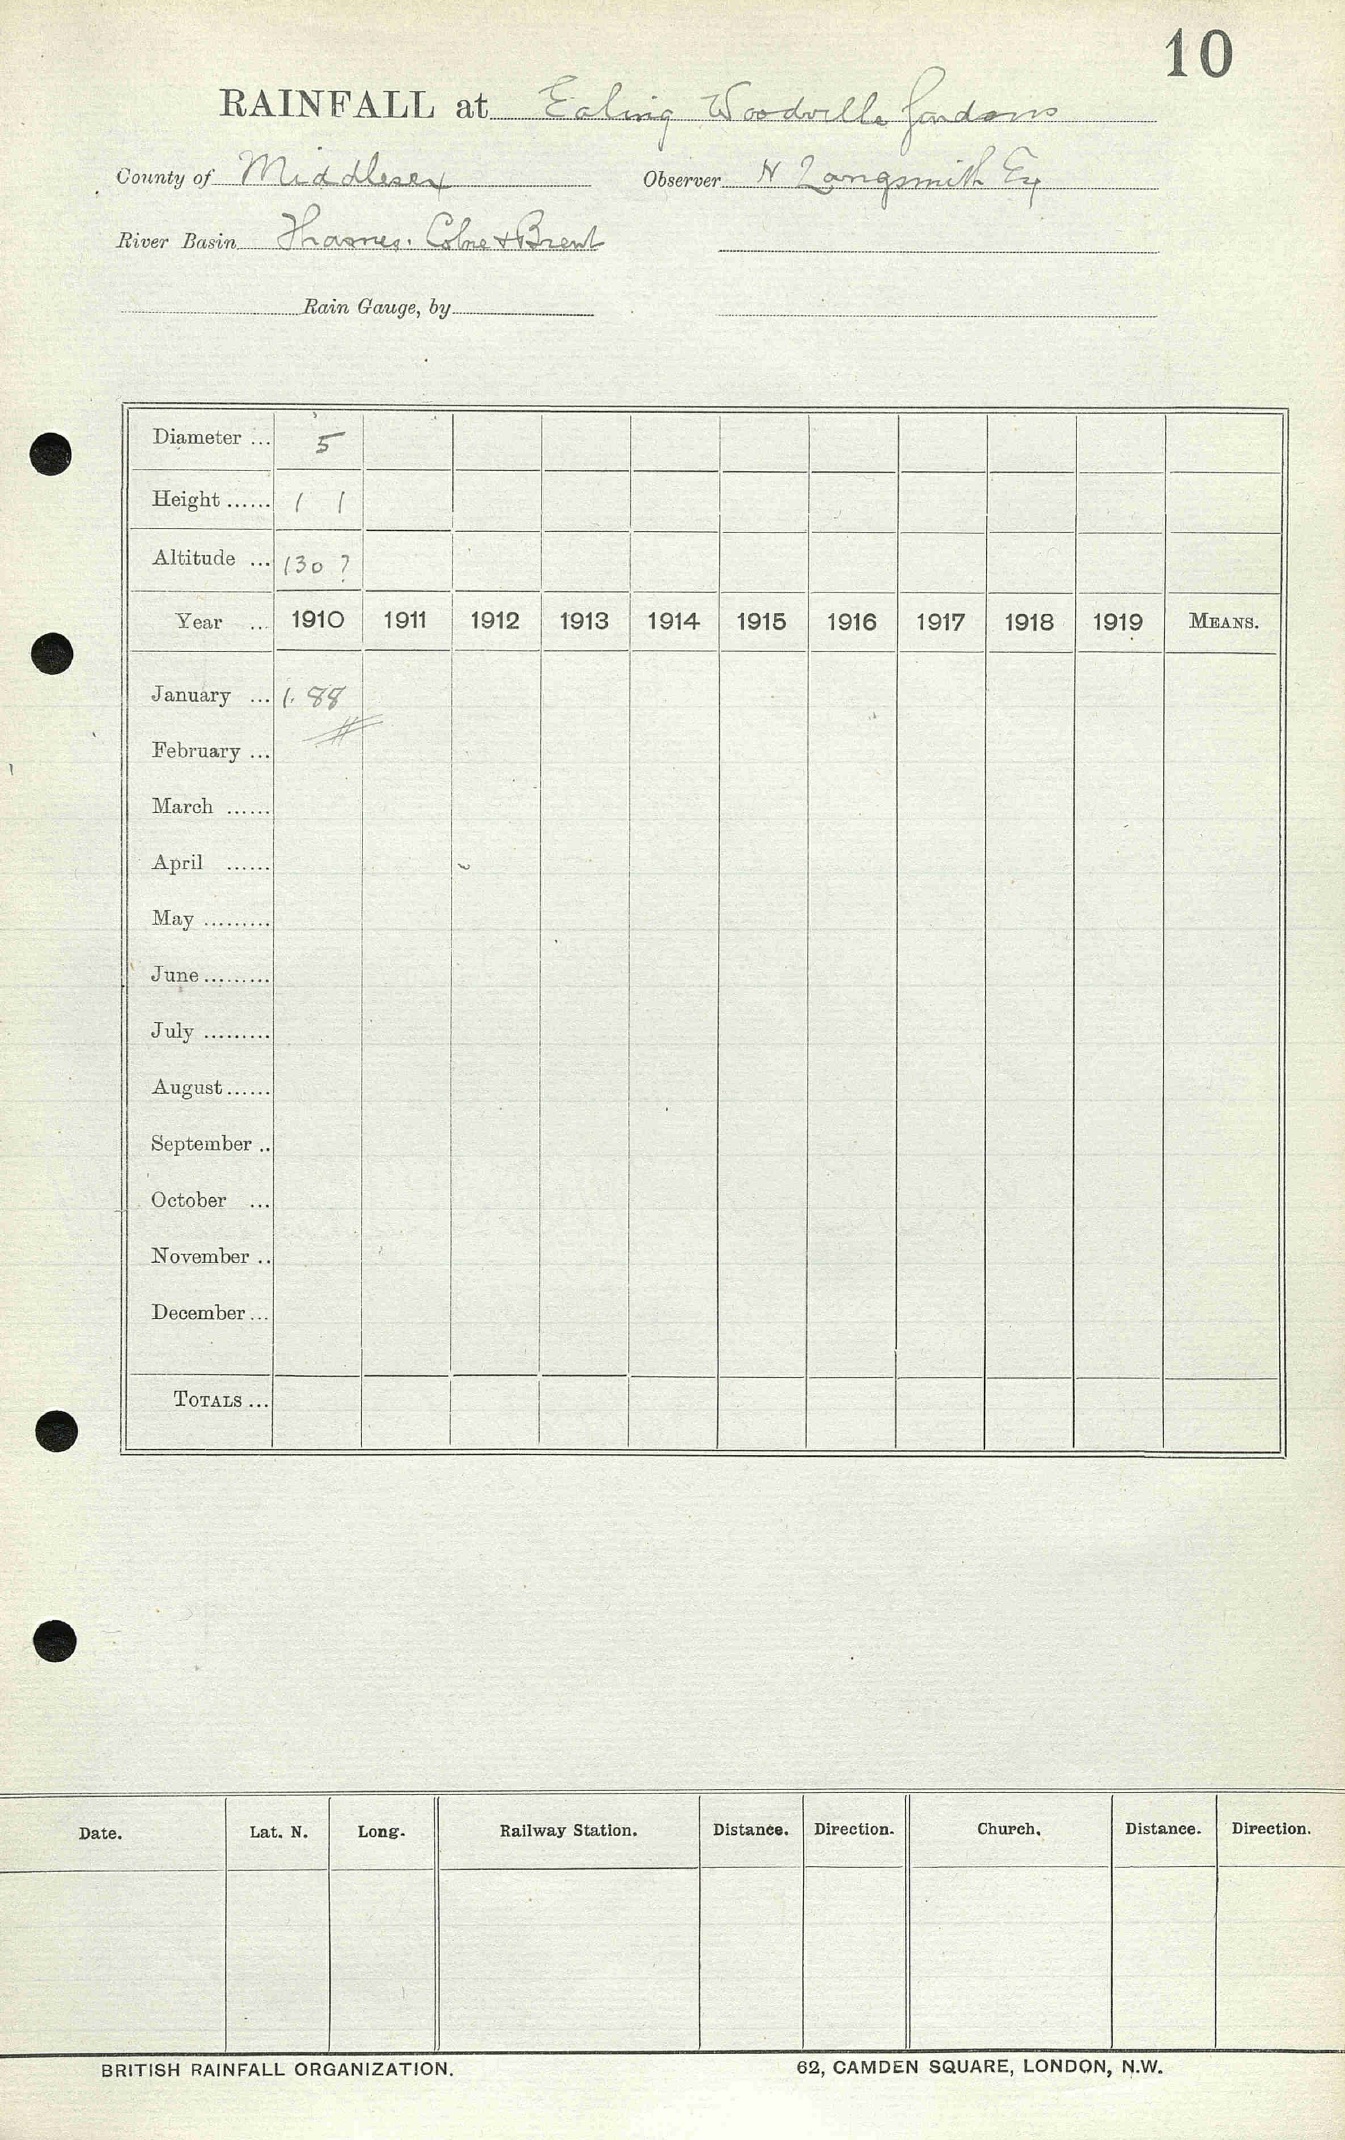 10
RAINFALL at Ealing Woodville Gardens
County of Middlesex Observer H Langsmith Esq
River Basin Thames. Colne & Brent
Rain Gauge, by
Diameter ... 5
Height ...... 1 1
Altitude ... 130 ?
Year ... 1910 1911 1912 1913 1914 1915 1916 1917 1918 1919 MEANS.
January ... 1. 88
February ...
March ......
April ......
May .........
June .........
July .........
August ......
September ..
October ...
November ..
December ...
TOTALS ...
Date. Lat. N. Long. Railway Station. Distance. Direction. Church. Distance. Direction.
BRITISH RAINFALL ORGANIZATION. 62, CAMDEN SQUARE, LONDON, N.W.